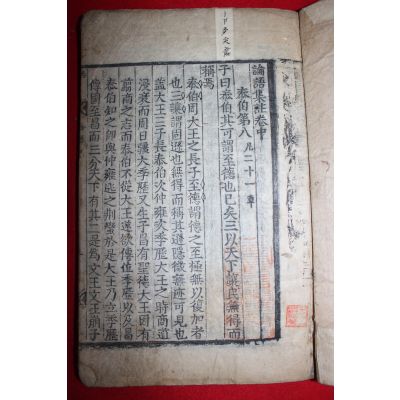 論語集註卷中
泰伯第八 凡二十一章
子曰泰伯其可謂至德也已矣三以天下讓民無得而
稱焉
泰伯周大王之長子至德謂德之至極無以復加者
也三讓謂固遜也無得而稱其遜隱微無迹可見也
蓋大王三子長泰伯次仲雍次季歷大王之時商道
寖衰而周日彊大季歷又生子昌有聖德大王因有
翦商之志而泰伯不從大王遂欲傳位季歷以及昌
泰伯知之卽與仲雍逃之荊蠻於是大王乃立季歷
傳國至昌而三分天下有其二是爲文王文王崩子